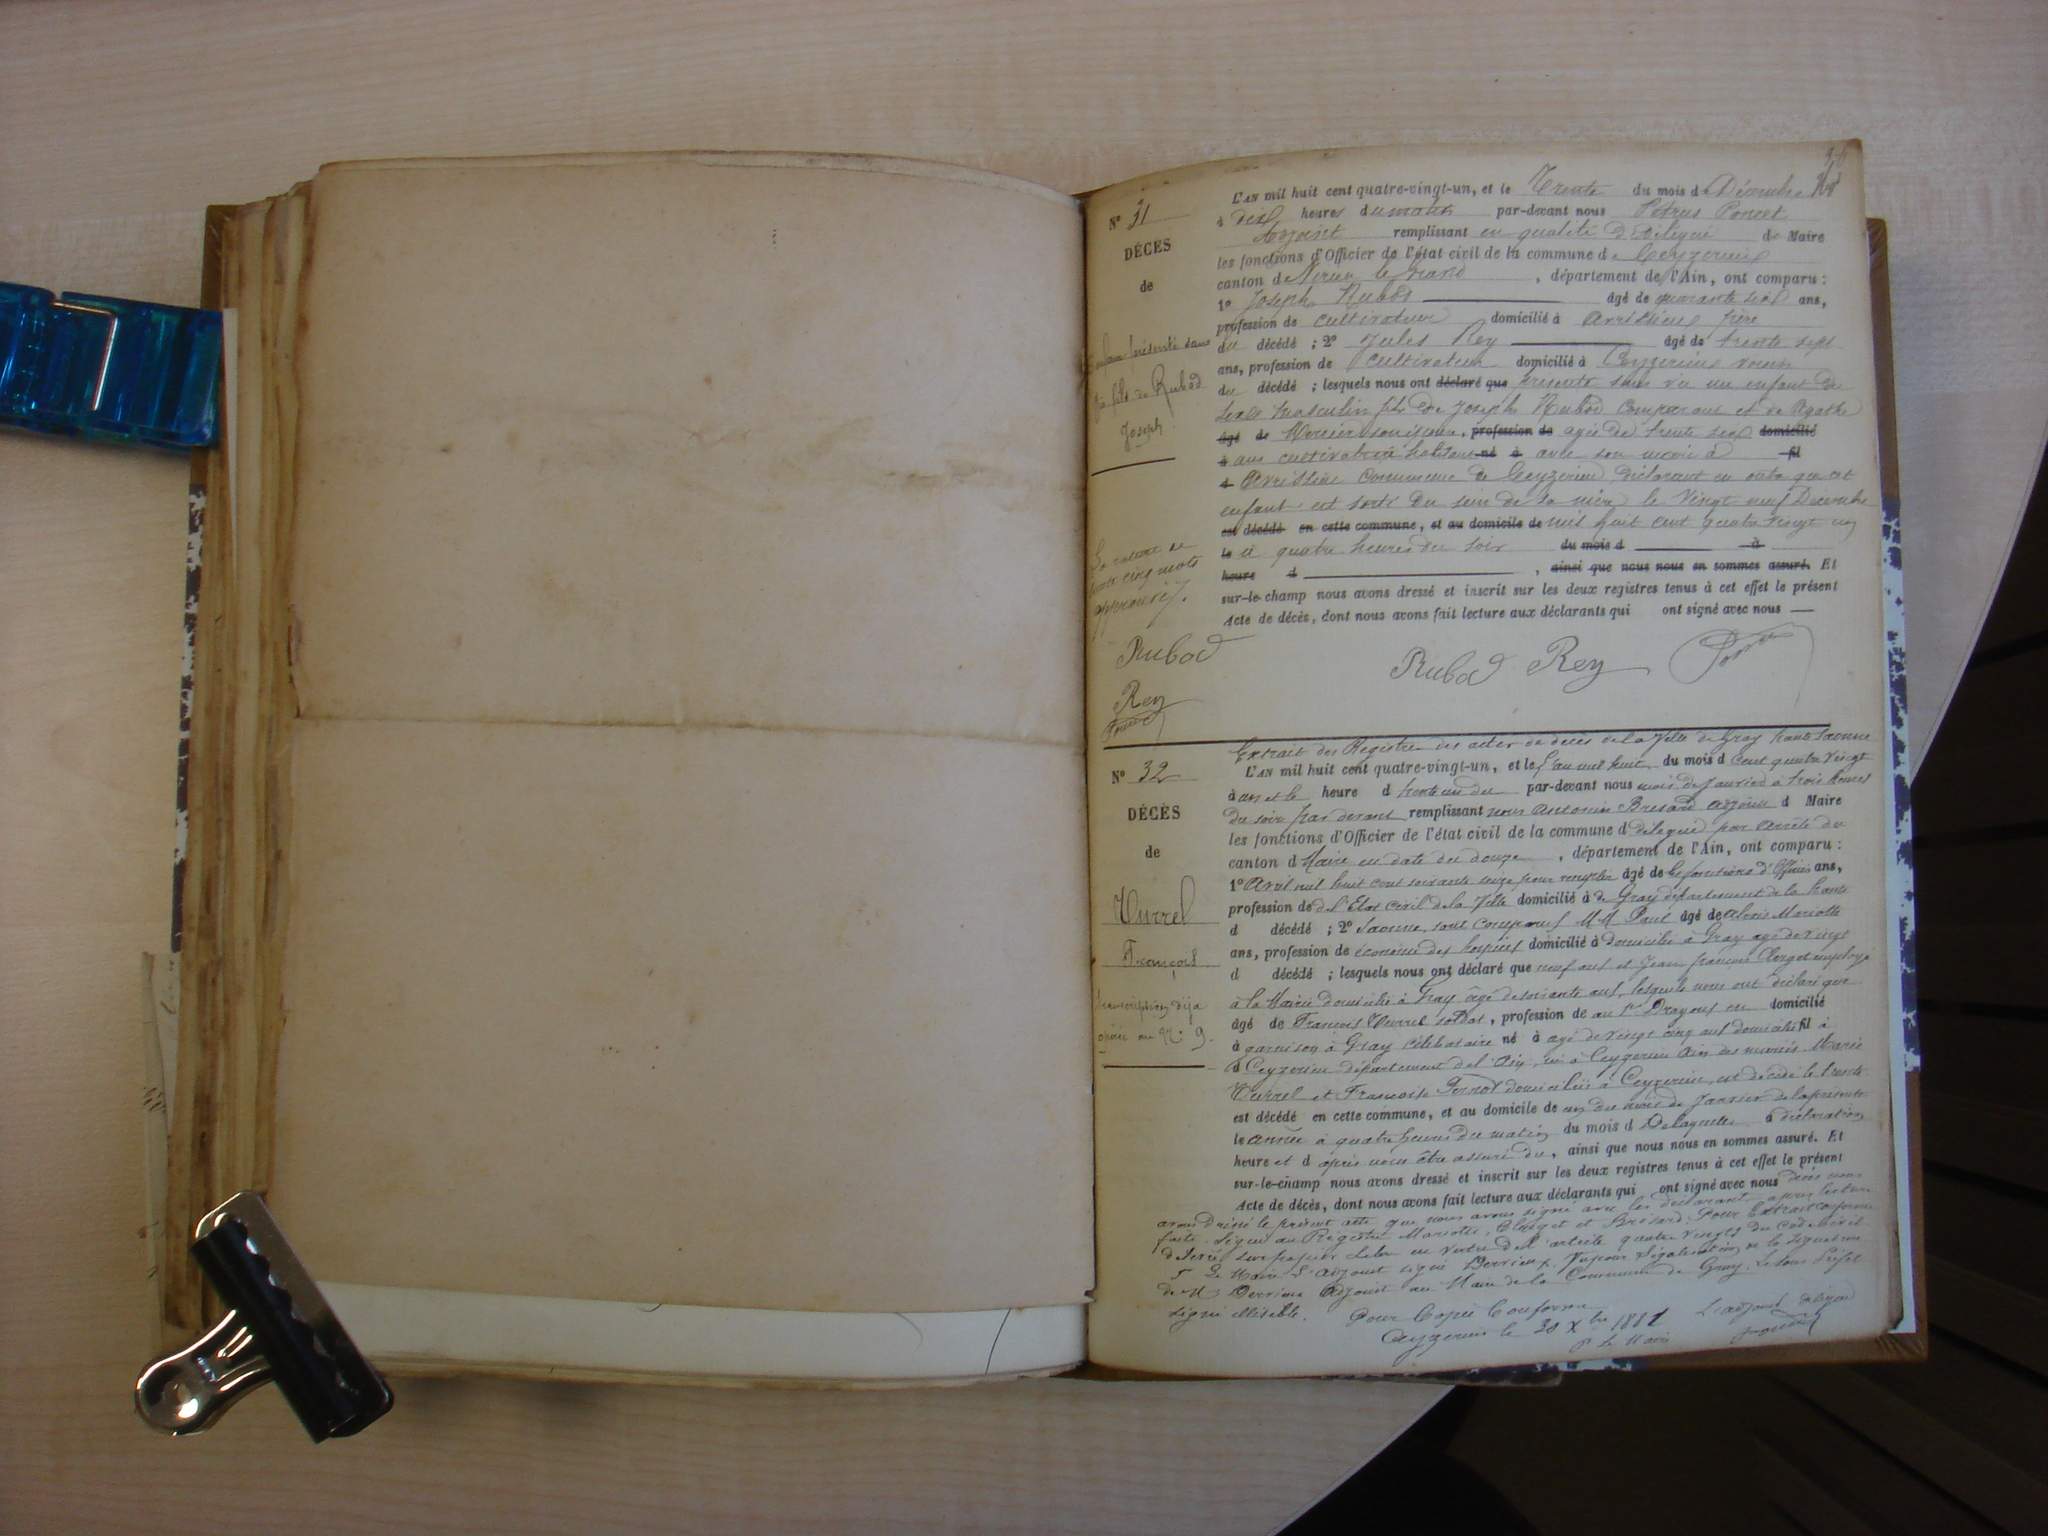 N° 31
DÉCES
de
Enfant présenté sans
vie fils de Rubod
Joseph
L'AN mil huit cent quatre-vingt-un, et le Trente du mois d Décembre
à dix heures du matin par-devant nous Pétrus Poncet
Adjoint remplissant en qualité de Délégué de Maire
les fonctions d'Officier de l'état civil de la commune de Ceyzerieu
canton de Virieu le Grand, département de l'Ain, ont comparu :
1° Joseph Rubod âgé de quarante six ans,
profession de cultivateur domicilié à Avrissieu père
du décédé ; 2° Jules Rey âgé de trente sept
ans, profession de cultivateur domicilié à Ceyzerieu voisin
du décédé ; lesquels nous ont déclaré que présenté sans vie un enfant du
sexe masculin fils de Joseph Rubod comparant et de Agathe
âgé de Mercier son épouse, profession de agée de trente six domicilié
à ans cultivatrice habitant né à avec son mari à fil
d Avrissieu commune de Ceyzerieu déclarant en outre que cet
enfant est sorti du sein de sa mère le Vingt neuf Décembre
est décédé en cette commune, et au domicile de mil huit cent quatre vingt un
le à quatre heures du soir du mois d à
heure d , ainsi que nous nous en sommes assuré. Et
sur-le-champ nous avons dressé et inscrit sur les deux registres tenus à cet effet le présent
Acte de décès, dont nous avons fait lecture aux déclarants qui ont signé avec nous
La rature de
cinq mots
approuvée.
Rubod
Rey
Poncet
Rubod Rey Poncet
N° 32
DÉCÈS
de
Vurrel
François
transcription déja
opérée au N° 9.
Extrait des Registres des actes de décès de la Ville de Gray haute Saonne
L'AN mil huit cent quatre-vingt-un, et le L'an mil huit du mois d cent quatre vingt
à un et le heure d trente un du par-devant nous mois de Janvier à trois heures
du soir par devant remplissant nous Antonin Bresard adjoint d Maire
les fonctions d'Officier de l'état civil de la commune d délégué par arrêté du
canton d Maire en date du douze, département de l'Ain, ont comparu :
1° Avril mil huit cent soixante seize pour remplir âgé de les fonctions d'Officier ans,
profession de de l'Etat civil de la Ville domicilié à de Gray département de la haute
d décédé ; 2° Saonne, sont comparus MM Paul âgé de Alexis Mariotte
ans, profession de économe des hospices domicilié à domicilié à Gray agé de vingt
d décédé ; lesquels nous ont déclaré que neuf ans et Jean François Clerget employé
à la Mairie domicilié à Gray âgé de soixante ans, lesquels nous ont déclaré que
âgé de François Vurrel soldat, profession de au 1er Dragons en domicilié
à garnison à Gray célibataire né à agé de vingt cinq ans domicilié fil à
d Ceyzerieu département de l'Ain, né à Ceyzerieu Ain des mariés Marie
Vurrel et Françoise Pernot domiciliés à Ceyzerieu, est décédé le trente
est décédé en cette commune, et au domicile de un du mois de Janvier de la présente
le année à quatre heures du matin du mois d De laquelle à déclaration
heure et d après nous être assuré du, ainsi que nous nous en sommes assuré. Et
sur-le-champ nous avons dressé et inscrit sur les deux registres tenus à cet effet le présent
Acte de décès, dont nous avons fait lecture aux déclarants qui ont signé avec nous décès nous
avons dressé le présent acte que nous avons signé avec les déclarants après lecture
faite. Signé au Registre Mariotte, Clerget et Brésard. Pour Extrait conforme
délivré sur papier libre en vertu de l'article quatre vingts du code civil
Le Maire L'adjoint signé Derrien. Vu pour légalisation de la signature
de M. Derrien Adjoint au Maire de la Commune de Gray. Le Sous Préfet
signé illisible. Pour Copie Conforme
Ceyzerieu le 30 Xbre 1881 L'adjoint délégué
P. le Maire Poncet